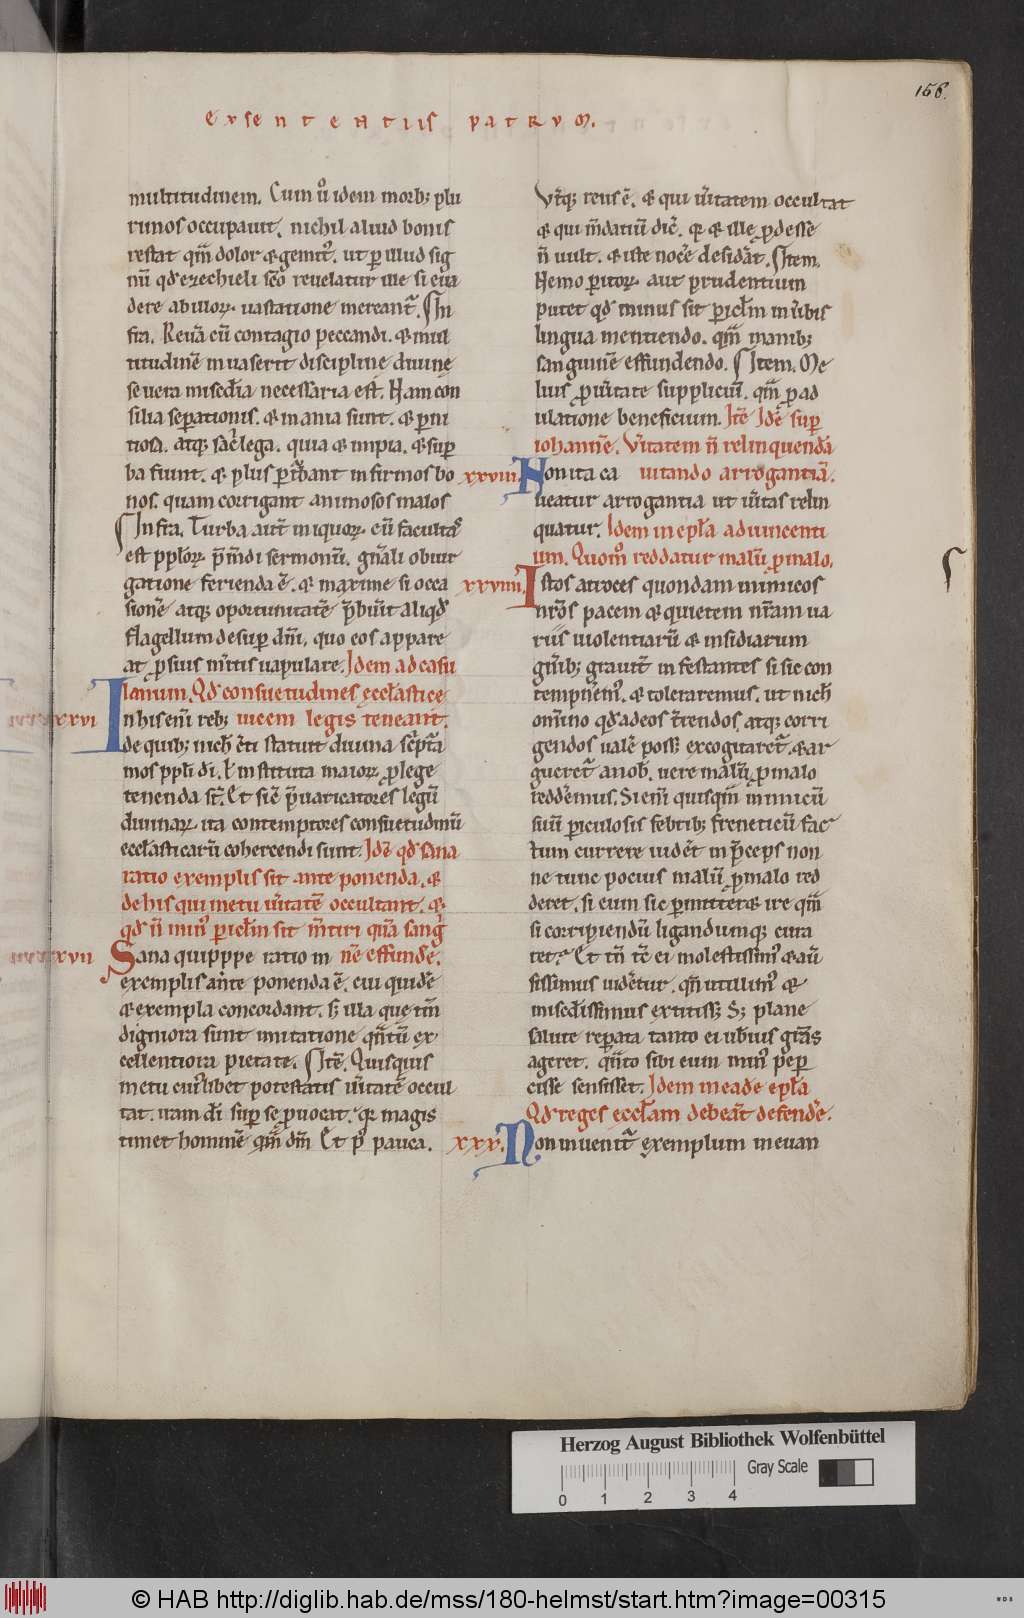 158.
Ex sententiis patrum.
multitudinem. Cum ů idem morb; plu
rimos occupauit. nichil aliud bonis
restat qm̄ dolor & gemit᷒. ut p illud sig
nū qđ ezechieli sc̄o reuelatur ille si eua
dere ab illoꝝ uastatione mereant᷑. In
fra. Reuā cū contagio peccandi. & mul
titudinē inuaserit discipline diuinę
seuera misedia necessaria est. Nam con
silia sepationis. & inania sunt. & pni
tiosa. atq; sac̄lega. quia & impia. & sup
ba fiunt. & plus pt̄bant infirmos bo
nos. quam corrigant animosos malos
Infra. Turba aut̄ iniquoꝝ cū facultas
est pploꝝ p̄mdi sermonū. gn̄ali obiur
gatione ferienda ē. & maxime si occa
sionē atq; oportunitatē p̄buit aliqđ
flagellum desup dn̄i. quo eos appare
at p suis m̄itis uapulare. Idem ad casu
lanum. Qđ consuetudines eccl̄asticę
xxvi In his eni reb; uicem legis teneant.
de quib; nich c̄ti statuit diuina sc̄pta
mos ppli di. l instituta maioꝝ p lege
tenenda st̄. Et sic p̄uaricatores legū
diuinaꝝ ita contemptores consuetudinū
eccl̄asticarū cohercendi sunt. Idē qđ sana
ratio exemplis sit anteponenda. &
de his qui metu ūitatē occultant. &
qđ n̄ min᷒ picl̄m sit m̄tiri quā sang
xxvii Sana quipppe ratio in nē effundē.
exemplis ante ponenda ē. cui quidē
& exempla concordant. s; illa quę tm̄
digniora sunt imitatione qn̄tū ex
cellentiora pietate. Itē. Quisquis
metu cui᷒libet potestatis ūitatē occul
tat. iram di sup se puocat. q magis
timet hominē qm̄ dm̄. Et p᷒ pauca.
Vt̄q; reus ē. & qui ūitatem occultat
& qui m̄datiū dic̄. q & ille pdesse
n̄ uult. & iste noc̄e desidat. Item.
Nemo pitoꝝ aut prudentium
putet qđ minus sit picl̄m in ūbis
lingua mentiendo. qm̄ manib;
sanguinē effundendo. Item. Me
lius p ūitate suppliciū. qm̄ p ad
ulatione beneficium. Itē Idē sup
iohannē. Vītatem n̄ relinquendā
xxviii Non ita ca uitando arrogantiā.
ueatur arrogantia ut ūitas relin
quatur. Idem in epl̄a ad uincenti
um. Quom̊ reddatur malū p malo.
xxviiii. Istos atroces quondam inimicos
nr̄os pacem & quietem nr̄am ua
riis uiolentiarū & insidiarum
gn̄ib; grauit̄ infestantes si sic con
tempn̄em᷒. & toleraremus. ut nich
om̄ino qđ ad eos t̄rendos atq; corri
gendos ualē poss; excogitaret᷑. & ar
gueret᷑ a nob. uere malū p malo
redd̄emus. Si eni quisqm̄ inimicū
suū piculosis febrib; freneticū fac
tum currere uidēt in p̄ceps non
ne tunc pocius malū p malo red
deret. si eum sic pmitter& ire qm̄
si corripiendū ligandumq; cura
ret? Et tn̄ tc̄ ei molestissim᷒ & aū
sissimus uidētur. qn̄ utillim᷒ &
misedissimus extitiss; S; plane
salute repata tanto ei ubius grās
ageret. qn̄to sibi eum min᷒ pep
cisse sensisset. Idem in eadē epl̄a
Qđ reges eccl̄am debeāt defendē.
xxx. Non inuenit᷑ exemplum in euan
Herzog August Bibliothek Wolfenbüttel
Gray Scale
0 1 2 3 4
© HAB http://diglib.hab.de/mss/180-helmst/start.htm?image=00315